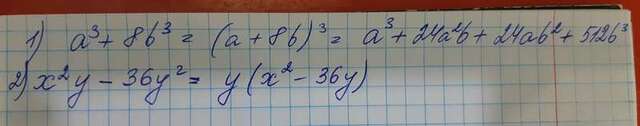 1) a³ + 8b³ = (a + 8b)³ = a³ + 24a²b + 24ab² + 512b³
2) x²y - 36y² = y(x² - 36y)